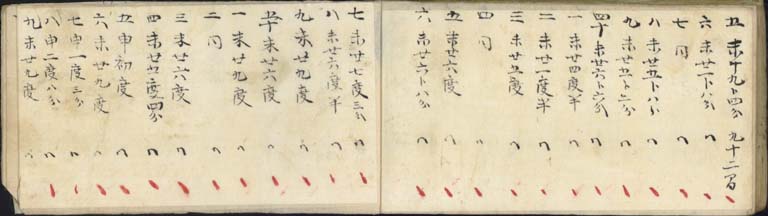 五 未十九卜四分 九十二間
六 未廿一卜八分 〃
七 同 〃
八 未廿五卜八分 〃
九 未廿五卜二分 〃
四十 未廿六卜六分 〃
一 未廿四度半 〃
二 未廿一度半 〃
三 未廿五度 〃
四 同 〃
五 未廿六度 〃
六 未廿六卜八分 〃
七 未廿七度三分 〃
八 未廿六度半 〃
九 未廿九度 〃
五十 未廿六度 〃
一 未廿九度 〃
二 同 〃
三 未廿六度 〃
四 未廿五度四分 〃
五 申初度 〃
六 未廿九度 〃
七 申一度三分 〃
八 申二度八分 〃
九 未廿九度 〃